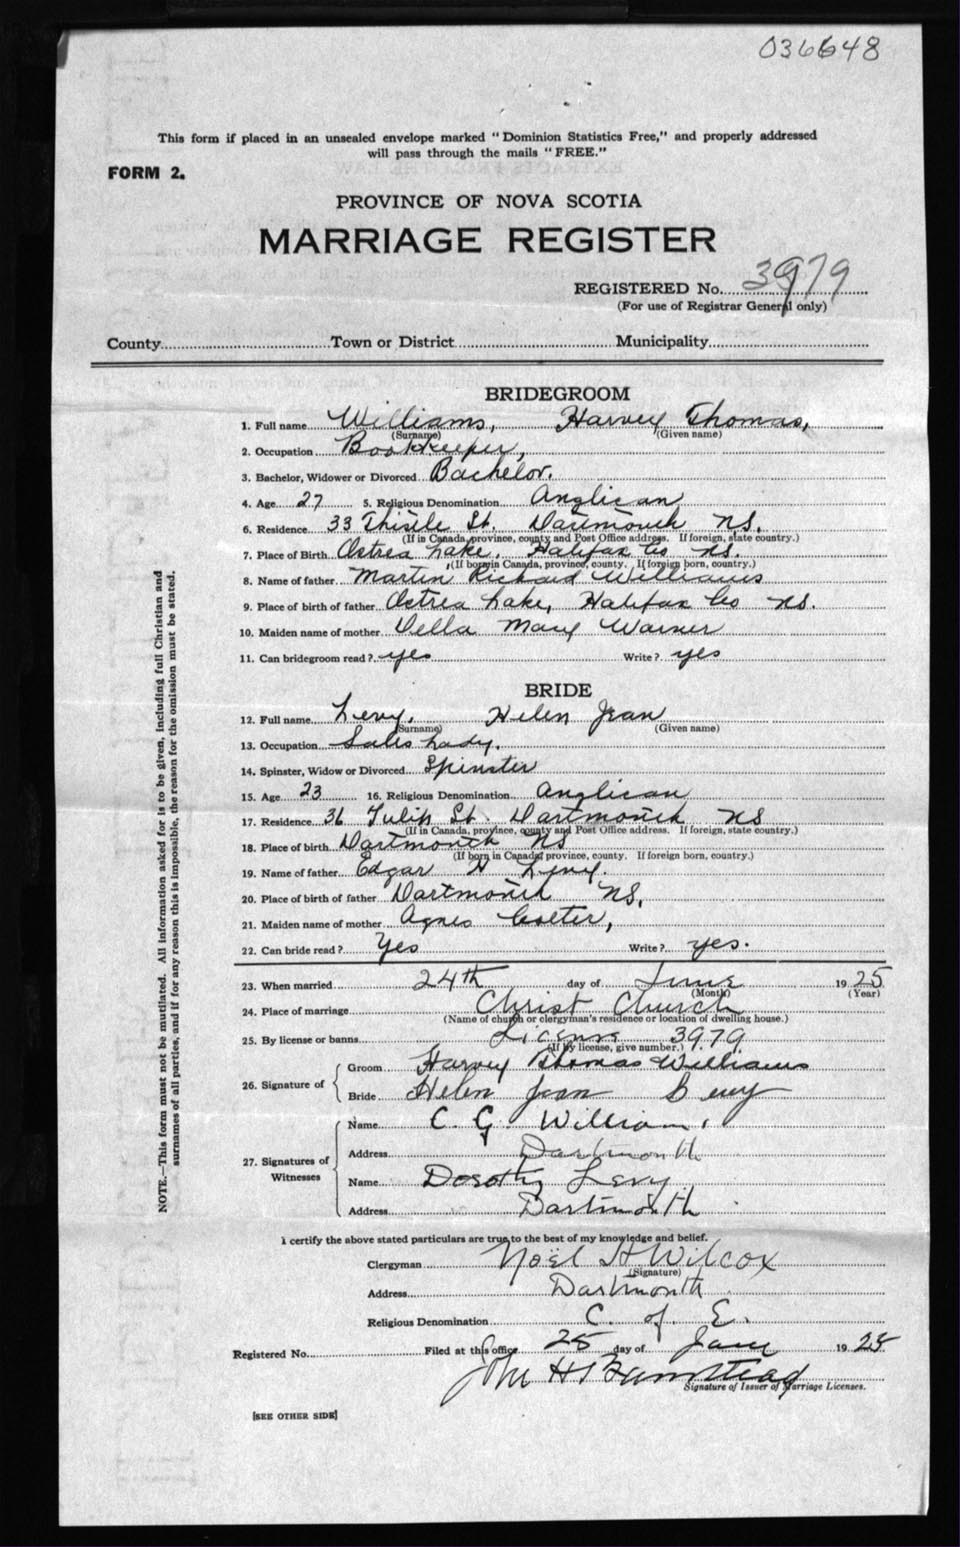 036648
This form if placed in an unsealed envelope marked "Dominion Statistics Free," and properly addressed
will pass through the mails "FREE."
FORM 2.
PROVINCE OF NOVA SCOTIA
MARRIAGE REGISTER
REGISTERED No. 3979
(For use of Registrar General only)
County Town or District Municipality
BRIDEGROOM
1. Full name Williams, Harvey Thomas,
(Surname) (Given name)
2. Occupation Bookkeeper,
3. Bachelor, Widower or Divorced Bachelor.
4. Age 27 5. Religious Denomination Anglican
6. Residence 33 Thistle St. Dartmouth NS.
(If in Canada, province, county and Post Office address. If foreign, state country.)
7. Place of Birth Ostrea Lake. Halifax Co NS.
(If born in Canada, province, county. If foreign born, country.)
8. Name of father Martin Richard Williams
9. Place of birth of father Ostrea Lake, Halifax Co NS.
10. Maiden name of mother Della Mary Warner
11. Can bridegroom read? yes Write? yes
BRIDE
12. Full name Levy, Helen Jean
(Surname) (Given name)
13. Occupation Sales Lady.
14. Spinster, Widow or Divorced Spinster
15. Age 23 16. Religious Denomination Anglican
17. Residence 36 Tulip St. Dartmouth NS
(If in Canada, province, county and Post Office address. If foreign, state country.)
18. Place of birth Dartmouth NS
(If born in Canada province, county. If foreign born, country.)
19. Name of father Edgar H Levy.
20. Place of birth of father Dartmouth NS,
21. Maiden name of mother Agnes
22. Can bride read? Yes Write? yes.
23. When married 24th day of June 1925
(Month) (Year)
24. Place of marriage Christ Church
(Name of church or clergyman's residence or location of dwelling house.)
25. By license or banns License 3979
(If by license, give number.)
26. Signature of
Groom Harvey Thomas Williams
Bride Helen Jean Levy
27. Signatures of Witnesses
Name C. G. Williams
Address Dartmouth
Name Dorothy Levy
Address Dartmouth
I certify the above stated particulars are true to the best of my knowledge and belief.
Clergyman Noël H Wilcox
(Signature)
Address Dartmouth
Religious Denomination C. of E.
Registered No. Filed at this office 25 day of June 1925
John H
Signature of Issuer of Marriage Licenses.
[SEE OTHER SIDE]
NOTE.—This form must not be mutilated. All information asked for is to be given, including full Christian and
surnames of all parties, and if for any reason this is impossible, the reason for the omission must be stated.